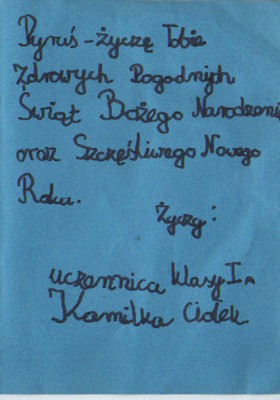 Pyruś - życzę Tobie
Zdrowych Pogodnych
Świąt Bożego Narodzenia
oraz Szczęśliwego Nowego
Roku.
Życzy:
uczennica klasy I A
Kamilka Cidek